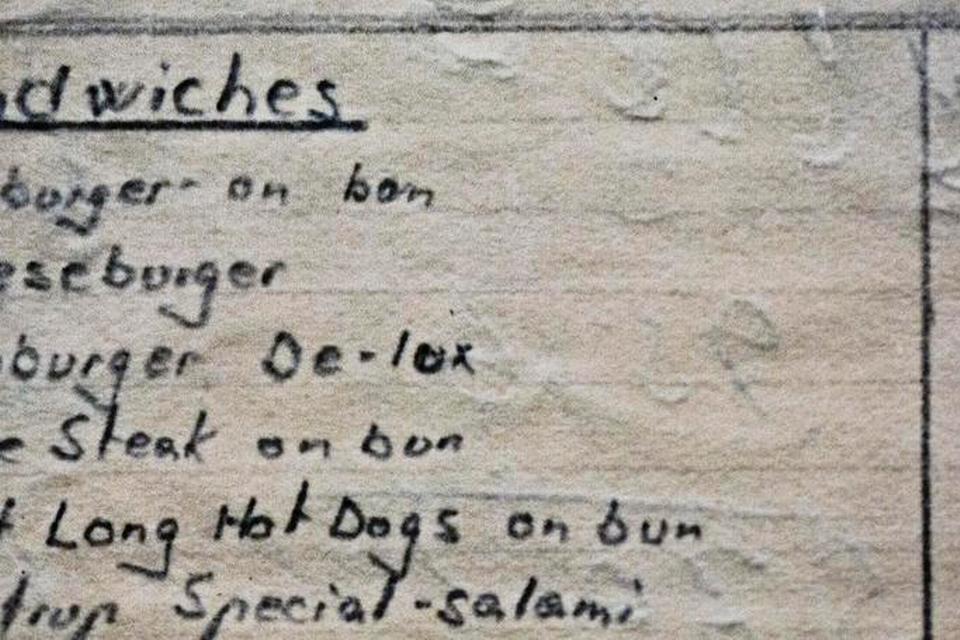 ndwiches
burger - on bon
eseburger
burger De-lux
e Steak on bun
t Long Hot Dogs on bun
Special - salami